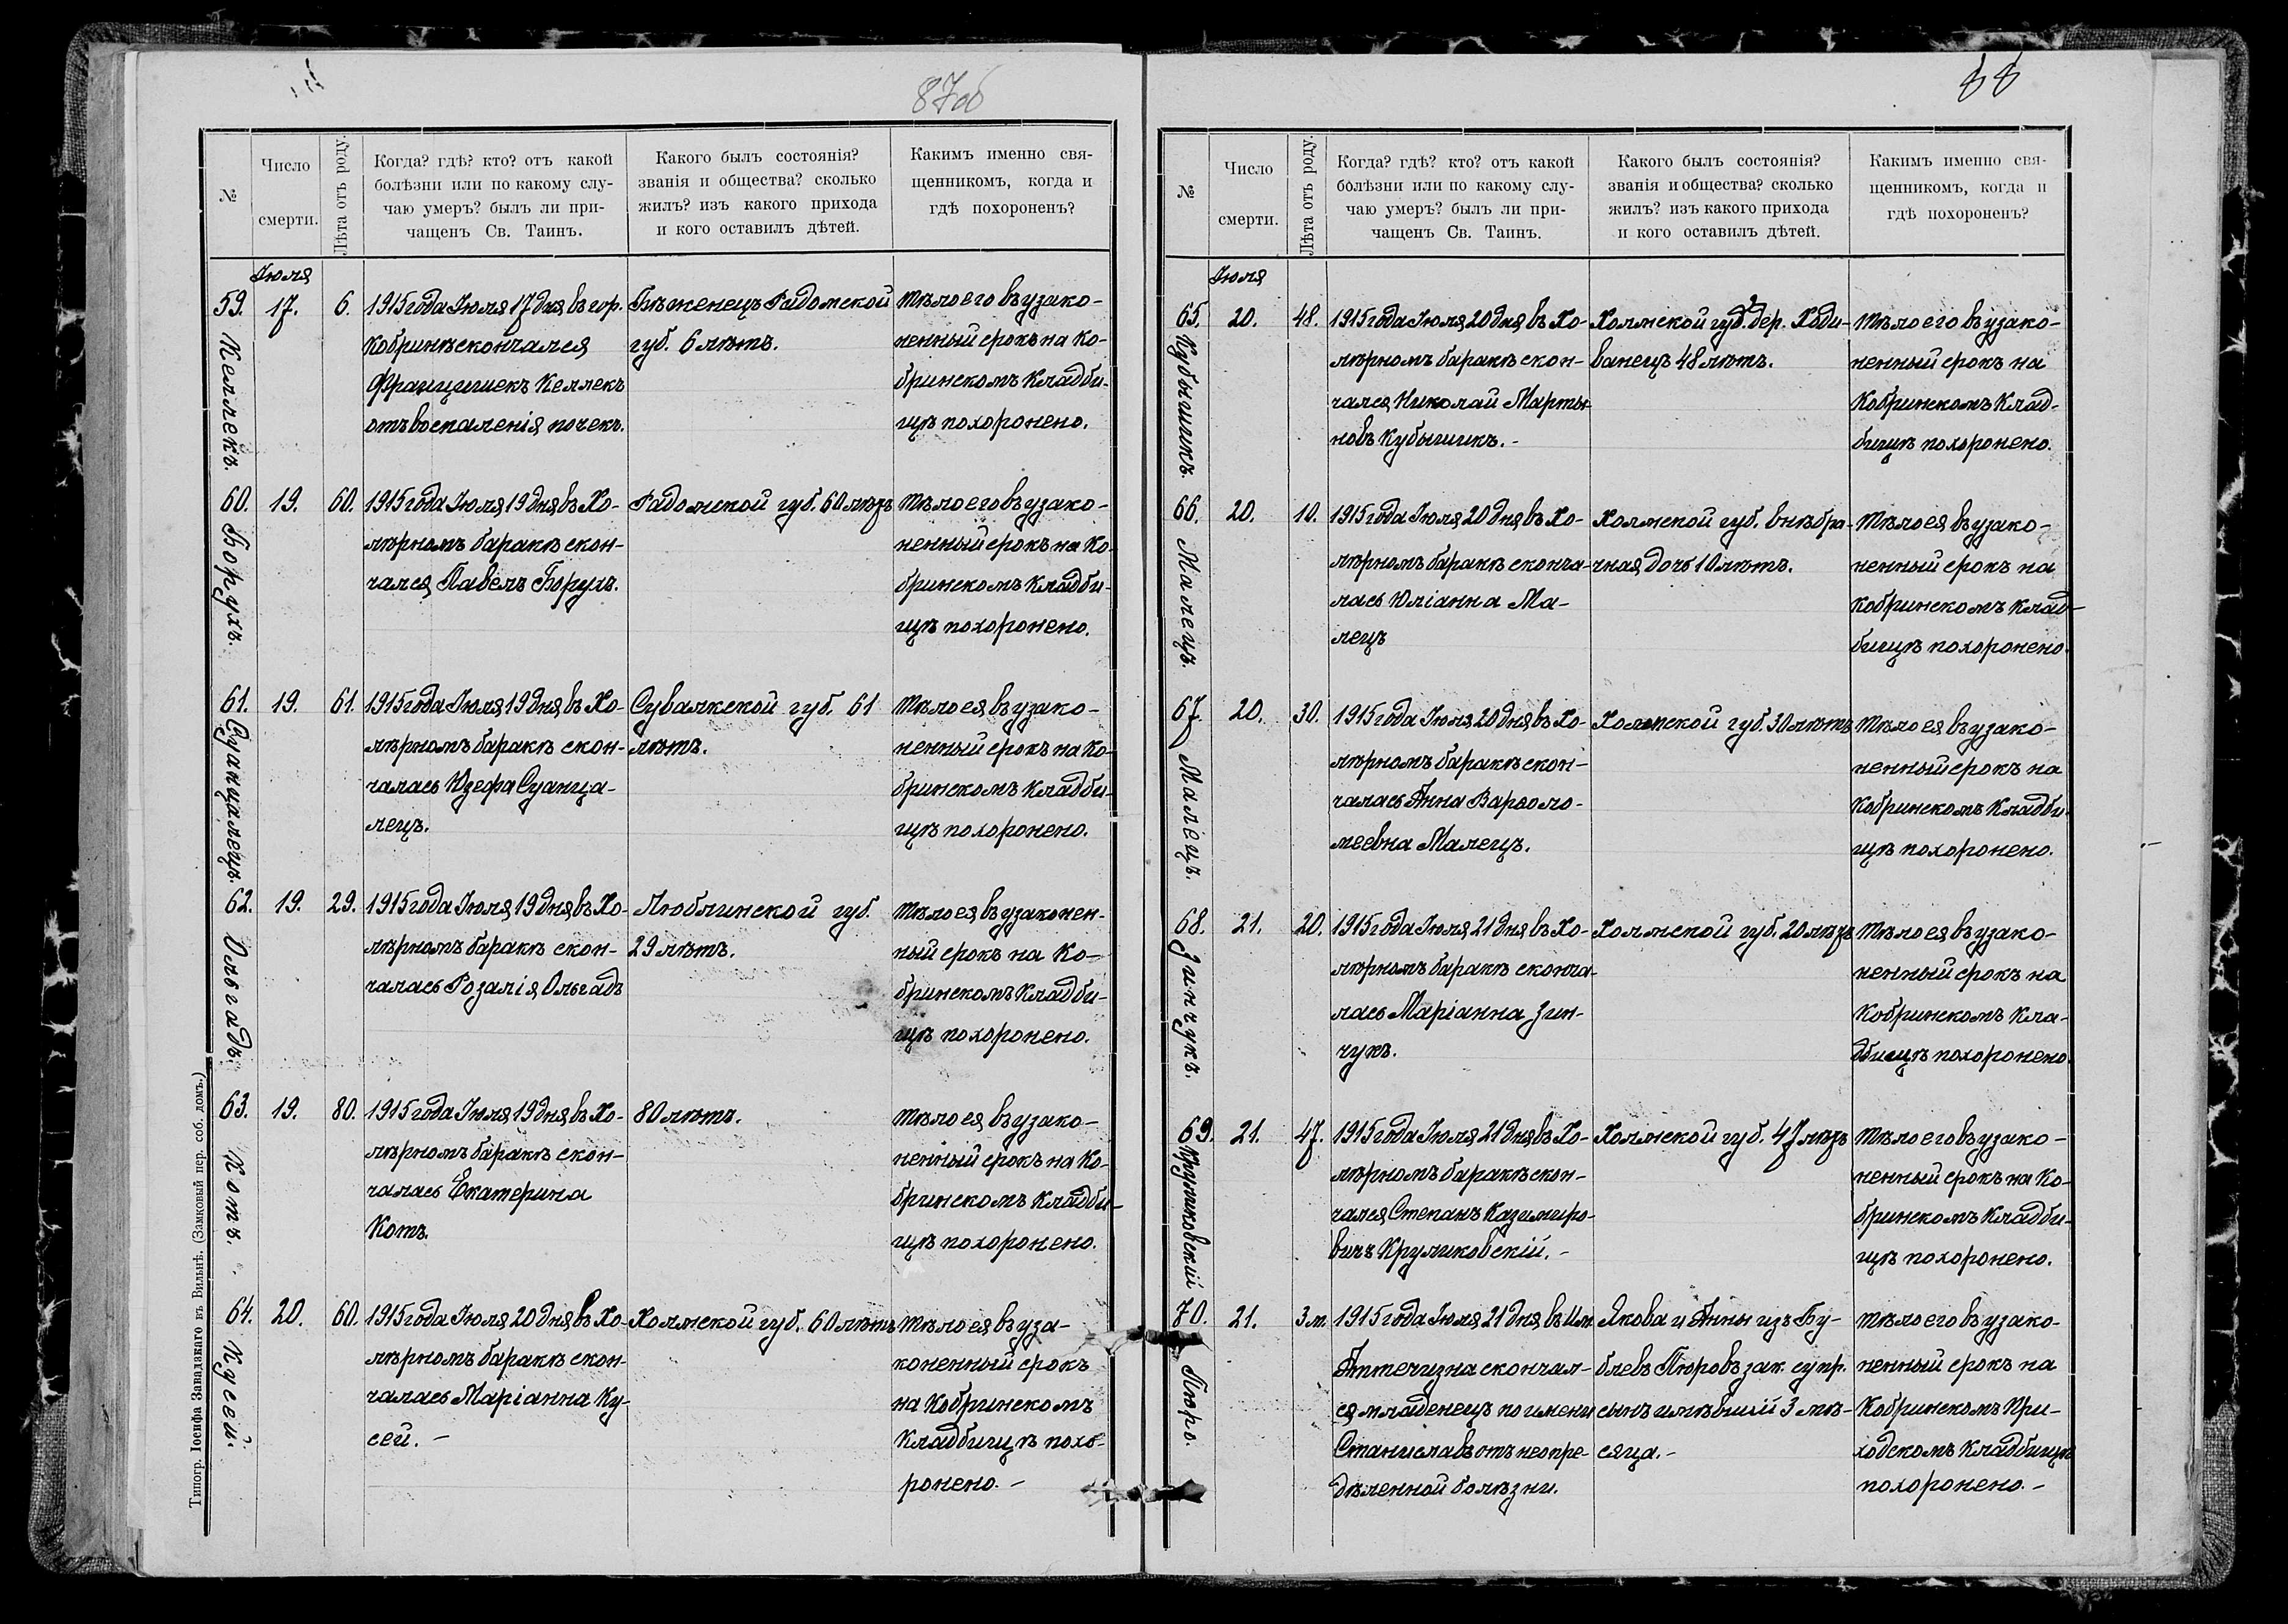 87об
№
Число
смерти.
Лѣта отъ роду.
Когда? гдѣ? кто? отъ какой
болѣзни или по какому слу-
чаю умеръ? былъ ли при-
чащенъ Св. Таинъ.
Какого былъ состоянія?
званія и общества? сколько
жилъ? изъ какого прихода
и кого оставилъ дѣтей.
Какимъ именно свя-
щенникомъ, когда и
гдѣ похороненъ?
Іюля
59.
Келлекъ.
17.
6.
1915 года Іюля 17 дня въ гор.
Кобринѣ скончался
Францишекъ Келлекъ
отъ воспаленія почекъ.
Бѣженецъ Радомской
губ. 6 лѣтъ.
Тѣло его въ узако-
ненный срокъ на Ко-
бринскомъ кладби-
щѣ похоронено.
60.
Борухъ.
19.
60.
1915 года Іюля 19 дня въ Хо-
лѣрномъ баракѣ скон-
чался Павелъ Борухъ.
Радомской губ. 60 лѣтъ
Тѣло его въ узако-
ненный срокъ на Ко-
бринскомъ кладби-
щѣ похоронено.
61.
Суанцалецъ.
19.
61.
1915 года Іюля 19 дня въ Хо-
лѣрномъ баракѣ скон-
чалась Юзефа Суанца-
лецъ.
Сувалкской губ. 61
лѣтъ.
Тѣло ея въ узако-
ненный срокъ на Ко-
бринскомъ кладби-
щѣ похоронено.
62.
Ольгадъ.
19.
29.
1915 года Іюля 19 дня въ Хо-
лѣрномъ баракѣ скон-
чалась Розалія Ольгадъ
Люблинской губ.
29 лѣтъ.
Тѣло ея въ узаконен-
ный срокъ на Ко-
бринскомъ кладби-
щѣ похоронено.
63.
Котъ.
19.
80.
1915 года Іюля 19 дня въ Хо-
лѣрномъ баракѣ скон-
чалась Екатерина
Котъ.
80 лѣтъ.
Тѣло ея въ узако-
ненный срокъ на Ко-
бринскомъ кладби-
щѣ похоронено.
64.
Кусей.
20.
60.
1915 года Іюля 20 дня въ Хо-
лѣрномъ баракѣ скон-
чалась Маріанна Ку-
сей. -
Холмской губ. 60 лѣтъ
Тѣло ея въ уза-
коненный срокъ
на Кобринскомъ
Кладбищѣ похо-
ронено. -
Типогр. Іосифа Завадзкаго въ Вильнѣ. (Замковый пер. соб. домъ.)
88
№
Число
смерти.
Лѣта отъ роду.
Когда? гдѣ? кто? отъ какой
болѣзни или по какому слу-
чаю умеръ? былъ ли при-
чащенъ Св. Таинъ.
Какого былъ состоянія?
званія и общества? сколько
жилъ? изъ какого прихода
и кого оставилъ дѣтей.
Какимъ именно свя-
щенникомъ, когда и
гдѣ похороненъ?
Іюля
65.
Кубышикъ.
20.
48.
1915 года Іюля 20 дня въ Хо-
лѣрномъ баракѣ скон-
чался Николай Марты-
новъ Кубышикъ. -
Холмской губ. дер. Ходи-
ванецъ 48 лѣтъ.
Тѣло его въ узако-
ненный срокъ на
Кобринскомъ Клад-
бищѣ похоронено.
66.
Малецъ.
20.
10.
1915 года Іюля 20 дня въ Хо-
лѣрномъ баракѣ сконча-
лась Юліанна Ма-
лецъ
Холмской губ. внѣбра-
чная дочь 10 лѣтъ.
Тѣло ея въ узако-
ненный срокъ на
Кобринскомъ клад-
бищѣ похоронено.
67.
Малецъ.
20.
30.
1915 года Іюля 20 дня въ Хо-
лѣрномъ баракѣ скон-
чалась Анна Варѳоло-
меевна Малецъ.
Холмской губ. 30 лѣтъ
Тѣло ея въ узако-
ненный срокъ на
Кобринскомъ Кладби-
щѣ похоронено.
68.
Зинчукъ.
21.
20.
1915 года Іюля 21 дня въ Хо-
лѣрномъ баракѣ сконча-
лась Маріанна Зин-
чукъ.
Холмской губ. 20 лѣтъ
Тѣло ея въ узако-
ненный срокъ на
Кобринскомъ Кла-
дбищѣ похоронено.
69.
Крумиковскій
21.
47.
1915 года Іюля 21 дня въ Хо-
лѣрномъ баракѣ скон-
чался Степанъ Казимиро-
вичъ Крумиковскій. -
Холмской губ. 47 лѣтъ
Тѣло его въ узако-
ненный срокъ на Ко-
бринскомъ Кладби-
щѣ похоронено.
70.
Пюро.
21.
3 м.
1915 года Іюля 21 дня въ Им.
Аптечизна скончал-
ся младенецъ по имени
Станиславъ отъ неопре-
дѣленной болѣзни.
Якова и Анны изъ Бу-
блевъ Пюровъ зак. супр.
сынъ имѣвшій 3 мѣ-
сяца. -
Тѣло его въ узако-
ненный срокъ на
Кобринскомъ При-
ходскомъ Кладбищѣ
похоронено. -